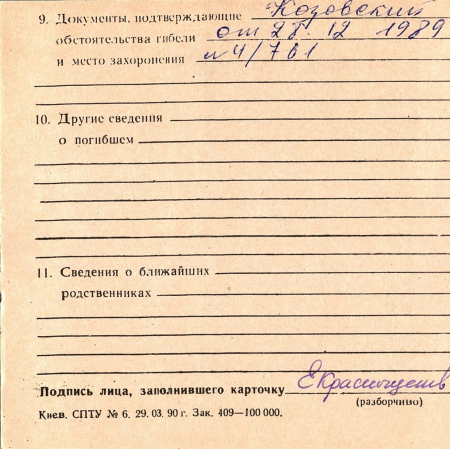 9. Документы, подтверждающие Козовский
обстоятельства гибели от 28. 12 1989
и место захоронения №4/761
10. Другие сведения
о погибшем
11. Сведения о ближайших
родственниках
Подпись лица, заполнившего карточку
(разборчиво)
Киев. СПТУ № 6. 29. 03. 90 г. Зак. 409—100 000.